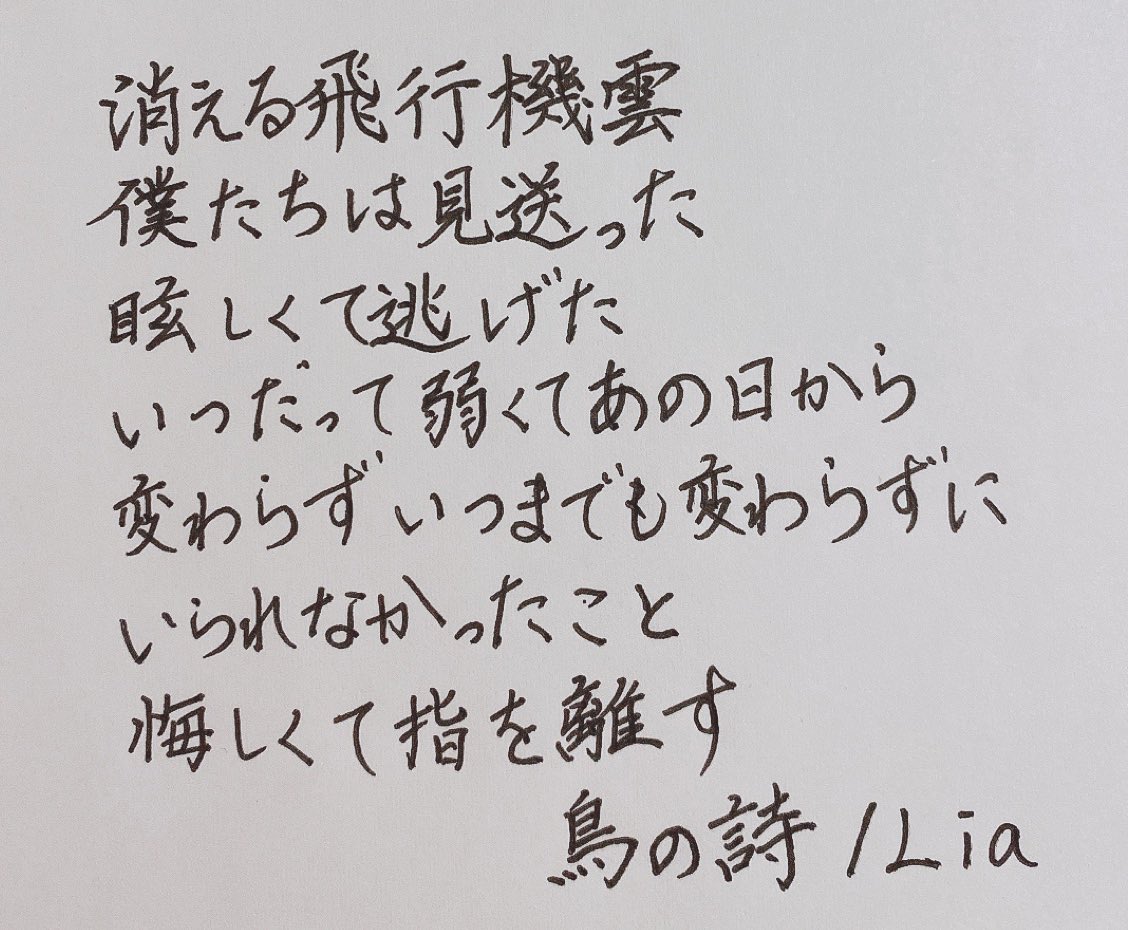 消える飛行機雲
僕たちは見送った
眩しくて逃げた
いつだって弱くてあの日から
変わらずいつまでも変わらずに
いられなかったこと
悔しくて指を離す
鳥の詩 / Lia